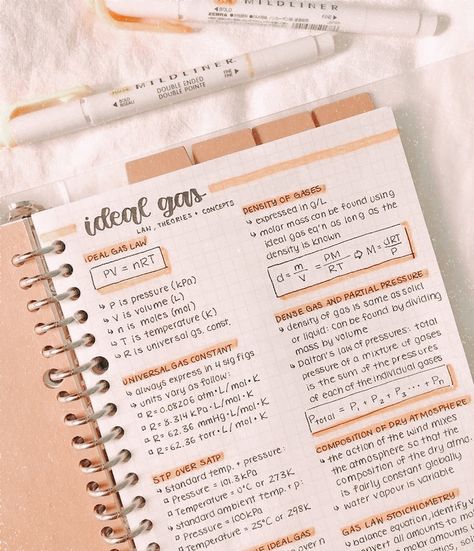 MILDLINER
DOUBLE ENDED
DOUBLE POINTE
BOLD
FINE
BOLD
FINE
ZEBRA
ideal gas
LAW, THEORIES + CONCEPTS
IDEAL GAS LAW
PV = nRT
↳ P is pressure (kPa)
↳ V is volume (L)
↳ n is moles (mol)
↳ T is temperature (K)
↳ R is universal gs. const.
UNIVERSAL GAS CONSTANT
↳ always express in 4 sig figs
↳ units vary as follow:
□ R= 0.08206 atm·L/mol·K
□ R= 8.314 kPa·L/mol·K
□ R= 62.36 mmHg·L/mol·K
□ R= 62.36 torr·L/mol·K
STP OVER SATP
↳ standard temp. + pressure:
□ Pressure = 101.3 kPa
□ Temperature = 0°C or 273K
↳ standard ambient temp. + p:
□ Pressure = 100kPa
□ Temperature = 25°C or 298K
OF IDEAL GAS
DENSITY OF GASES
↳ expressed in g/L
↳ molar mass can be found using
ideal gas eq'n as long as the
density is known
d = m/V = PM/RT ⇨ M = dRT/P
DENSE GAS AND PARTIAL PRESSURE
↳ density of gas is same as solid
or liquid: can be found by dividing
mass by volume
↳ Dalton's law of pressures: total
pressure of a mixture of gases
is the sum of the pressures
of each of the individual gases
P Total = P₁ + P₂ + P₃ ... + Pn
COMPOSITION OF DRY ATMOSPHERE
↳ the action of the wind mixes
the atmosphere so that the
composition of the dry atmo
is fairly constant globally
↳ water vapour is variable
GAS LAW STOICHIOMETRY
↳ balance equation, identify v
all amounts to mol